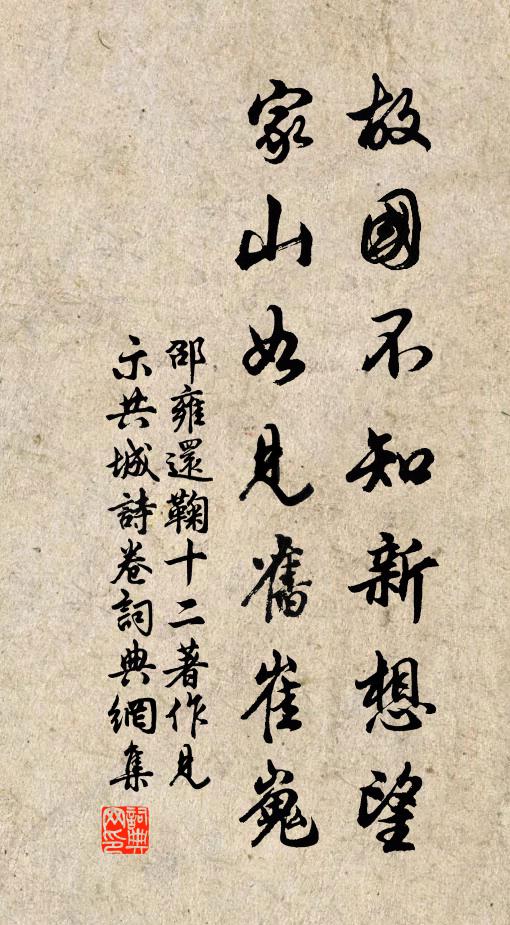 故國不知新想望
家山如見舊崔嵬
邵雍還鞠十二著作見
示共城詩卷詞典網集
詞典网印